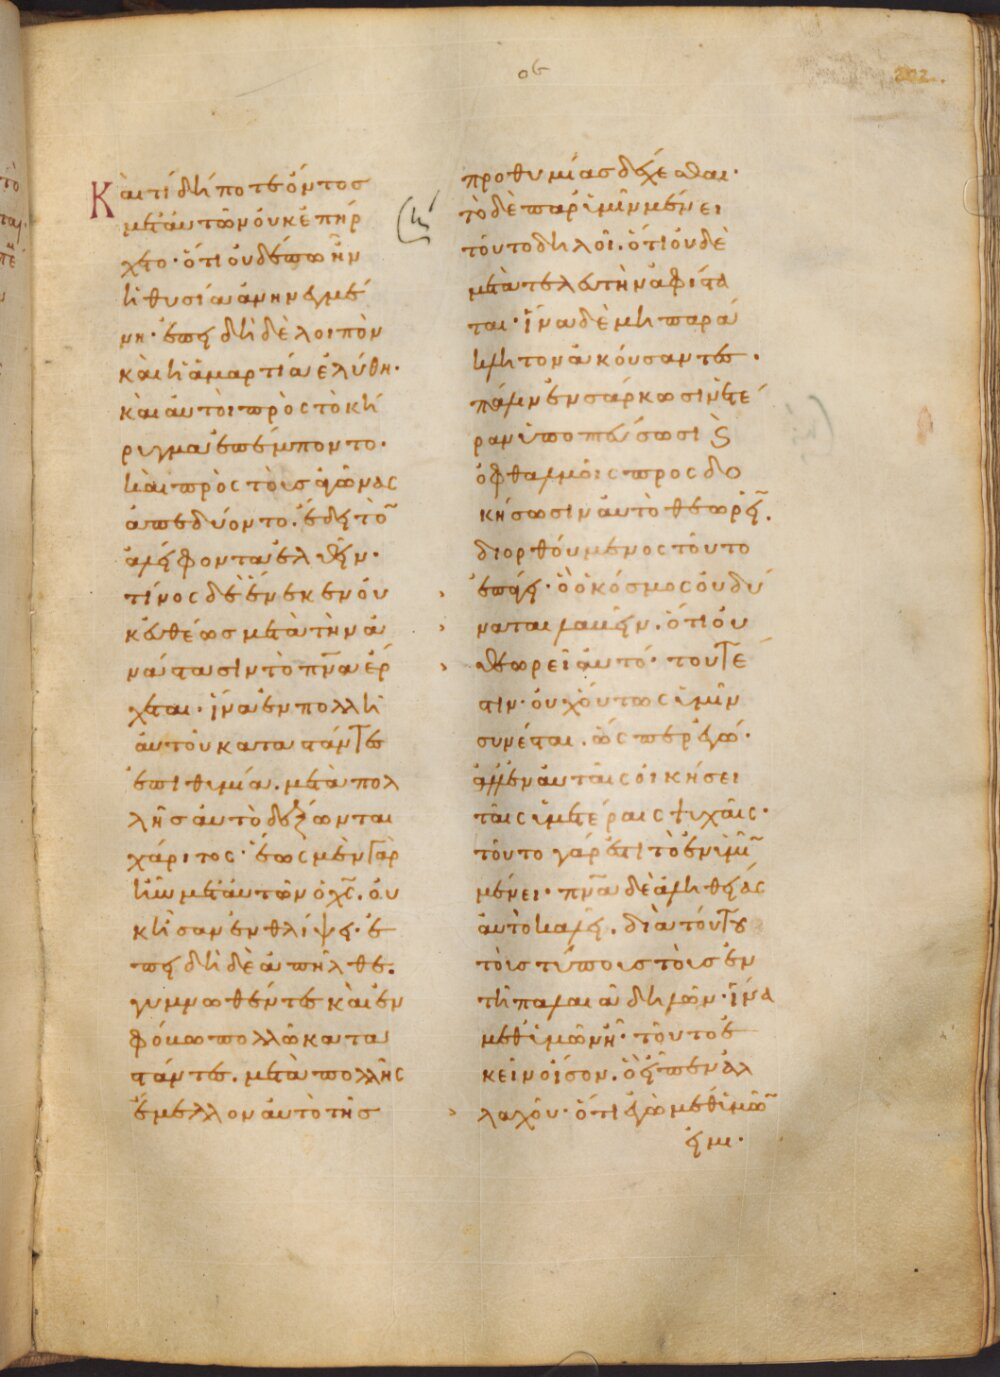 ος
202
Καὶ τί δήποτε ὄντος
μετ' αὐτῶν οὐκ ἐπήρ
χετο· ὅτι οὐδέπω ἦν
ἡ θυσία ἀνηνεγμέ
νη· ἐπεὶ δὴ δὲ λοιπὸν
καὶ ἡ ἁμαρτία ἐλύθη·
καὶ αὐτοὶ πρὸς τὸ κή
ρυγμα ἐπέμποντο·
καὶ πρὸς τοὺς ἀγῶνας
ἀπεδύοντο. ἔδει τὸ̅
ἀλείφοντα ἐλθεῖν·
τίνος δὲ ἕνεκεν οὐ
κ εὐθέως μετὰ τὴν ἀ
νάστασιν τὸ πν̅α ἔρ
χεται· ἵνα ἐν πολλῆ
αὐτοῦ καταστάντες
ἐπιθυμία. μετὰ πολ
λῆς αὐτὸ δέξωνται
χάριτος· ἕως μὲν γὰρ
ἦν μετ' αὐτῶν ὁ χς̅. οὐ
κ ἦσαν ἐν θλίψει· ἐ
πεὶ δὴ δὲ ἀπῆλθε.
γυμνωθέντες καὶ ἐν
φόβω πολλῶ κατα
στάντες. μετὰ πολλῆς
ἔμελλον αὐτὸ τῆς
προθυμίας δέχεσθαι·
τὸ δὲ παρ' ὑμῖν μένει
τοῦτο δηλοῖ. ὅτι οὐδὲ
μετὰ τελευτὴν ἀφίστα
ται· ἵνα δὲ μὴ παρά
κλητον ἀκούσαντες.
πάλιν ἐν σάρκωσιν ἑτέ
ραν ὑποπτεύσωσι ϗ
ὀφθαλμοῖς προσδο
κήσωσιν αὐτὸ θεωρεῖ̅.
διορθούμενος τοῦτο
ἐπάγει· ὃ ὁ κόσμος οὐ δύ
ναται λαβεῖν. ὅτι οὐ
θεωρεῖ αὐτό· τουτέ
στιν· οὐχ οὕτως ὑμῖν
συνέσται. ὥσπερ ἐγώ·
ἀλλ' ἐν αὐταῖς οἰκήσει
ταῖς ὑμετέραις ψυχαῖς·
τοῦτο γάρ ἐστι τὸ ἐν ὑμῖ̅
μένει· πν̅α δὲ ἀληθείας
αὐτὸ καλεῖ. διὰ τούτου
τοὺς τύπους τοὺς ἐν
τῆ παλαιᾶ δηλῶν· ἵνα
μεθ' ὑμῶν ἦ· τοῦτο ἐ
κείνοις ὅν. ὃ εἶπεν ἀλ
λαχοῦ· ὅτι ἐγὼ μεθ' ὑμῶ̅
εἰμι·